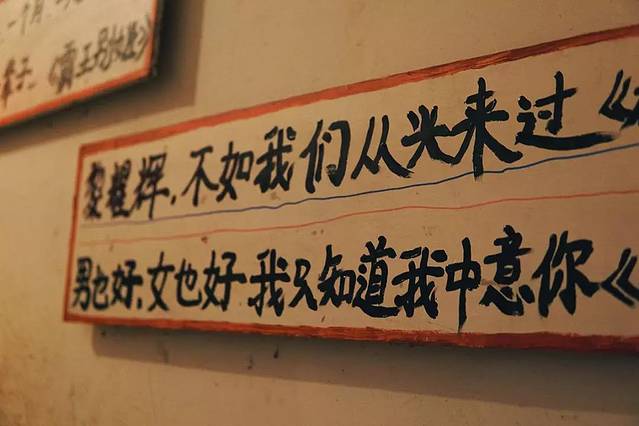 一个月
辈子.《霸王别姬》
黎耀辉,不如我们从头来过《
男也好,女也好 我只知道我中意你《